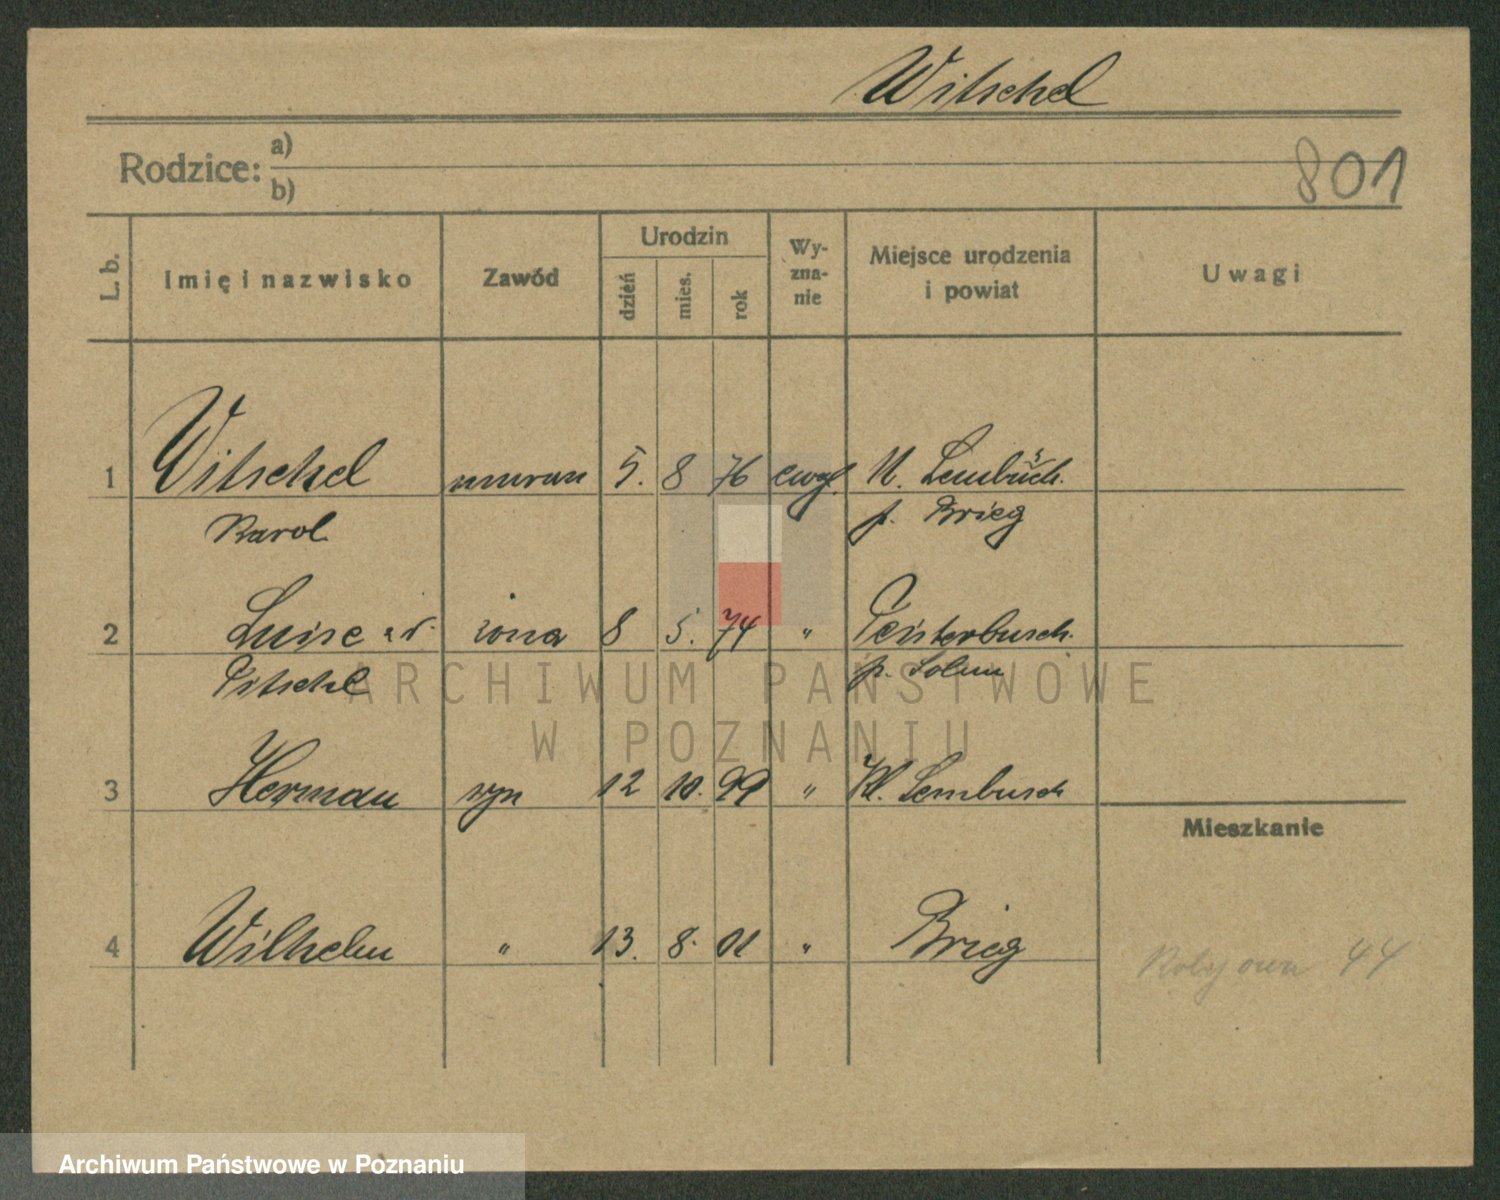 Witschel
Rodzice: a)
b)
801
L. b. Imię i nazwisko Zawód Urodzin dzień mies. rok Wy-zna-nie Miejsce urodzenia i powiat Uwagi
1 Witschel muran 5. 8 76 ewgl.
Karol p. Brieg
2 Luise żona 8 5. 74 "
Pitschel
3 Herman syn 12 10. 99 " Kl. Lembusch
Mieszkanie
4 Wilhelm " 13. 8. 01 " Brieg
44
ARCHIWUM PAŃSTWOWE
W POZNANIU
Archiwum Państwowe w Poznaniu